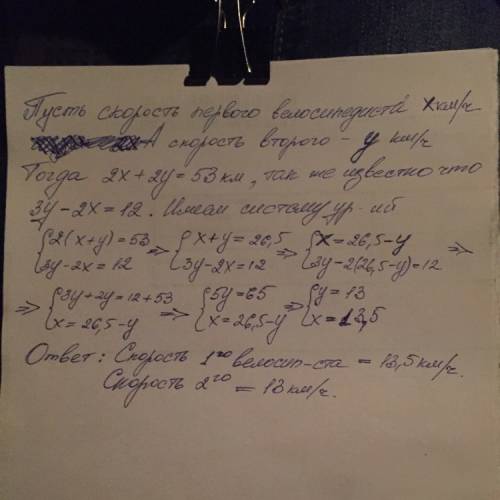 Пусть скорость первого велосипедиста x км/ч
А скорость второго - y км/ч
Тогда 2x+2y=53 км, так же известно что
3y-2x=12. Имеем систему ур-ий
{2(x+y)=53 3y-2x=12 => {x+y=26,5 3y-2x=12 => {x=26,5-y 3y-2(26,5-y)=12 =>
=> {3y+2y=12+53 x=26,5-y => {5y=65 x=26,5-y => {y=13 x=13,5
Ответ: Скорость 1го велосип-ста = 13,5 км/ч.
Скорость 2го = 13 км/ч.